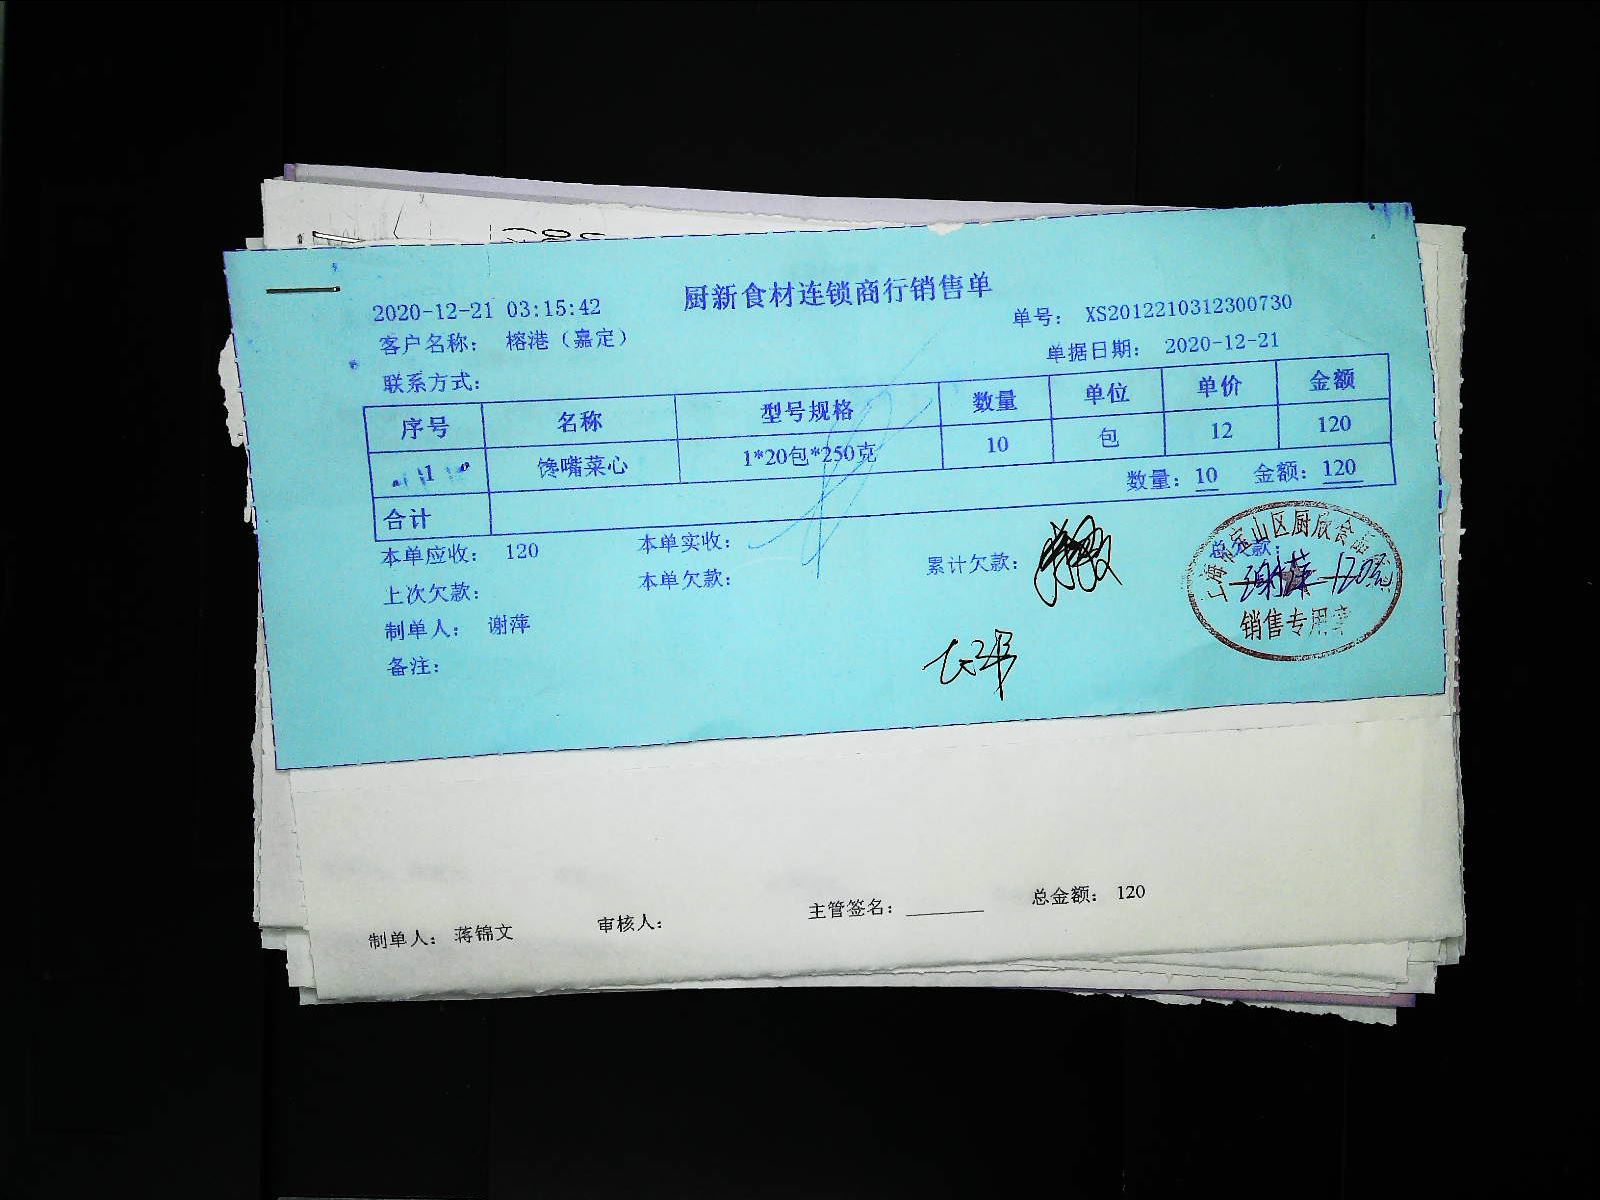 厨新食材连锁商行销售单
2020-12-21 03:15:42
单号： XS2012210312300730
客户名称： 榕港（嘉定）
单据日期： 2020-12-21
联系方式：
序号 名称 型号规格 数量 单位 单价 金额
1 馋嘴菜心 1*20包*250克 10 包 12 120
合计 数量：10 金额：120
本单应收： 120 本单实收： 累计欠款： 总欠款：
上次欠款： 本单欠款：
制单人： 谢萍
备注：
上海市宝山区厨欣食品
谢萍
销售专用章
制单人： 蒋锦文 审核人： 主管签名： 总金额： 120